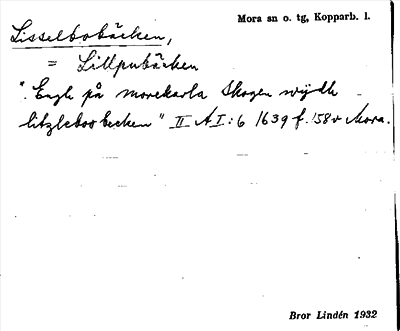 Mora sn o. tg, Kopparb. l.
Lisselbobäcken,
= Lillpubäcken
"Engh på morekarla skogen wijdh
litzleboo becken" II A I:6 1639 f. 158v Mora.
Bror Lindén 1932